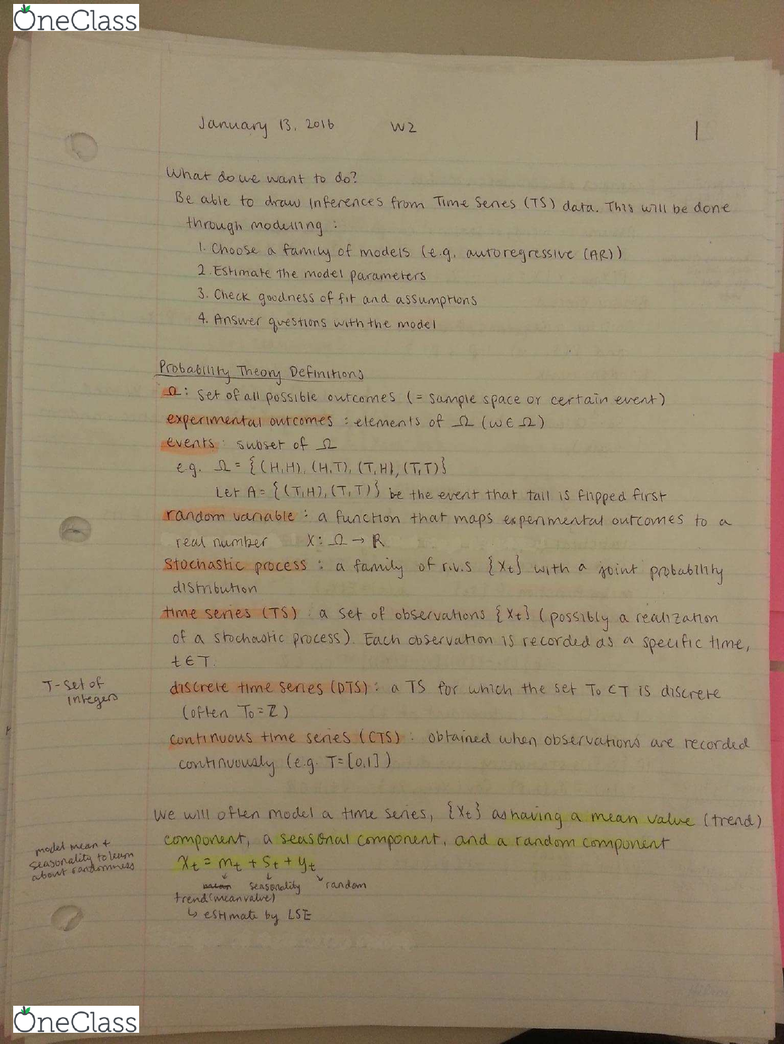 OneClass
January 13, 2016 W2 1
What do we want to do?
Be able to draw inferences from Time Series (TS) data. This will be done
through modelling :
1. Choose a family of models (e.g. autoregressive (AR))
2. Estimate the model parameters
3. Check goodness of fit and assumptions
4. Answer questions with the model
Probability Theory Definitions
Ω : set of all possible outcomes (= sample space or certain event)
experimental outcomes : elements of Ω (ω ∈ Ω)
events : subset of Ω
e.g. Ω = {(H,H), (H,T), (T,H), (T,T)}
Let A = {(T,H), (T,T)} be the event that tail is flipped first
random variable : a function that maps experimental outcomes to a
real number X: Ω → R
stochastic process : a family of r.v.s {Xt} with a joint probability
distribution
time series (TS) : a set of observations {Xt} (possibly a realization
of a stochastic process). Each observation is recorded as a specific time,
t ∈ T
T - set of
integers
discrete time series (DTS) : a TS for which the set T0 ⊂ T is discrete
(often T0 = Z)
continuous time series (CTS) : obtained when observations are recorded
continuously (e.g. T = [0,1])
We will often model a time series, {Xt} as having a mean value (trend)
component, a seasonal component, and a random component
model mean +
seasonality to learn
about randomness
Xt = mt + St + yt
seasonality random
trend (mean value)
↳ estimate by LSE
OneClass